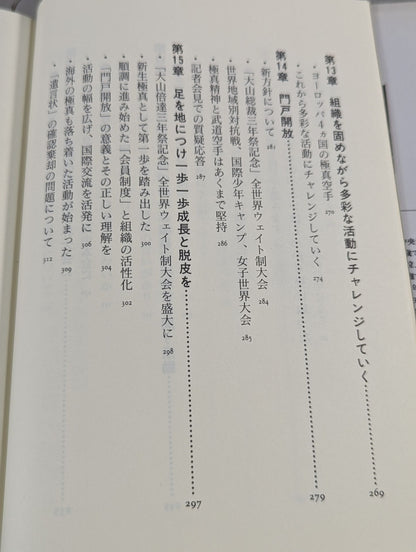 第13章 組織を固めながら多彩な活動にチャレンジしていく 269
・ヨーロッパ4ヵ国の極真空手 270
・これから多彩な活動にチャレンジしていく 274
第14章 門戸開放 279
・新方針について 281
・「大山総裁三年祭記念」全世界ウェイト制大会 284
・世界地域別対抗戦、国際少年キャンプ、女子世界大会 285
・極真精神と武道空手はあくまで堅持 286
・記者会見での質疑応答 287
第15章 足を地につけ一歩一歩成長と脱皮を 297
・「大山倍達三年祭記念」全世界ウェイト制大会を盛大に 298
・新生極真として第一歩を踏み出した 300
・順調に進み始めた「会員制度」と組織の活性化 302
・「門戸開放」の意義とその正しい理解を 304
・活動の幅を広げ、国際交流を活発に 306
・海外の極真も落ち着いた活動が始まった 309
・「遺言状」の確認棄却の問題について 312